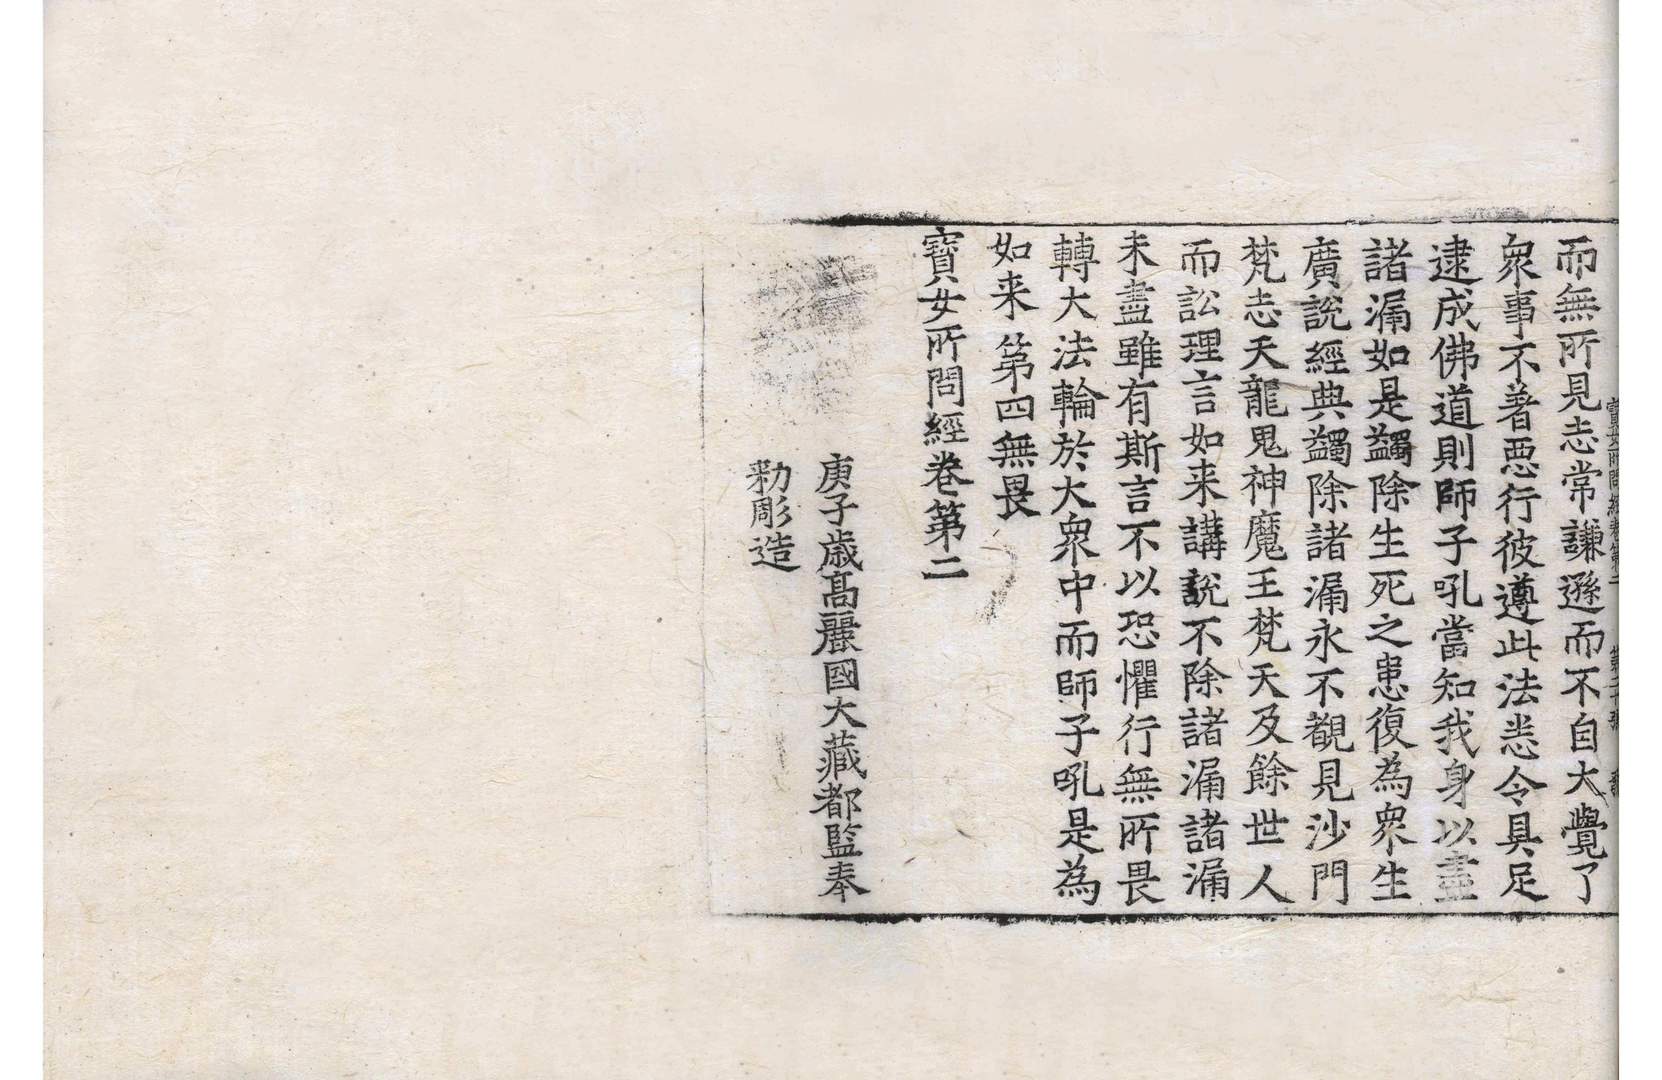 而無所見志常謙遜而不自大覺了
衆事不著惡行彼遵此法悉令具足
逮成佛道則師子吼當知我身以盡
諸漏如是蠲除生死之患復為衆生
廣說經典蠲除諸漏永不覩見沙門
梵志天龍鬼神魔王梵天及餘世人
而訟理言如来講說不除諸漏諸漏
未盡雖有斯言不以恐懼行無所畏
轉大法輪於大衆中而師子吼是為
如来第四無畏
寶女所問經卷第二
庚子歲高麗國大藏都監奉
勑彫造